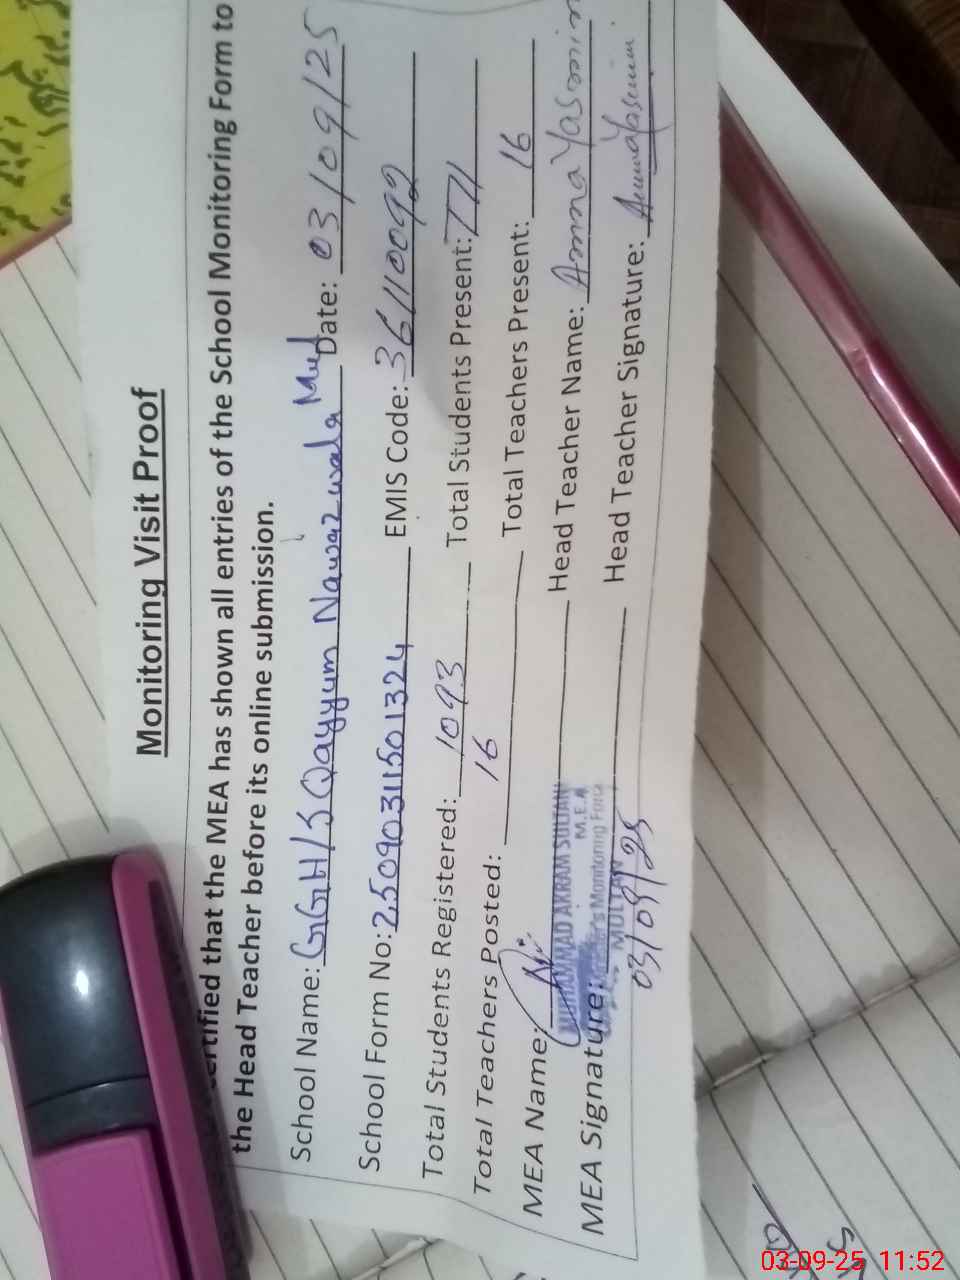 Monitoring Visit Proof
ertified that the MEA has shown all entries of the School Monitoring Form to
the Head Teacher before its online submission.
School Name: GGH/S Qayyum Nawaz wala Mul Date: 03/09/25
School Form No: 25090311501324 EMIS Code: 36110092
Total Students Registered: 1093 Total Students Present: 771
Total Teachers Posted: 16 Total Teachers Present: 16
MEA Name: Head Teacher Name: Amna Yasmin
MUHAMMAD AKRAM SULTANI
M.E.A
MEA Signature: Head Teacher Signature: Amna Yasmin
Monitoring Force
MULTAN
03/09/25
03-09-25 11:52